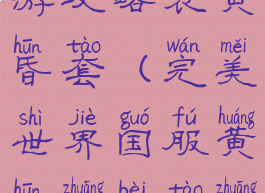 游攻略装黄
hūn tào wán měi
昏套（完美
shì jiè guó fú huáng
世界国服黄
hūn zhuāng bèi tào zhuāng